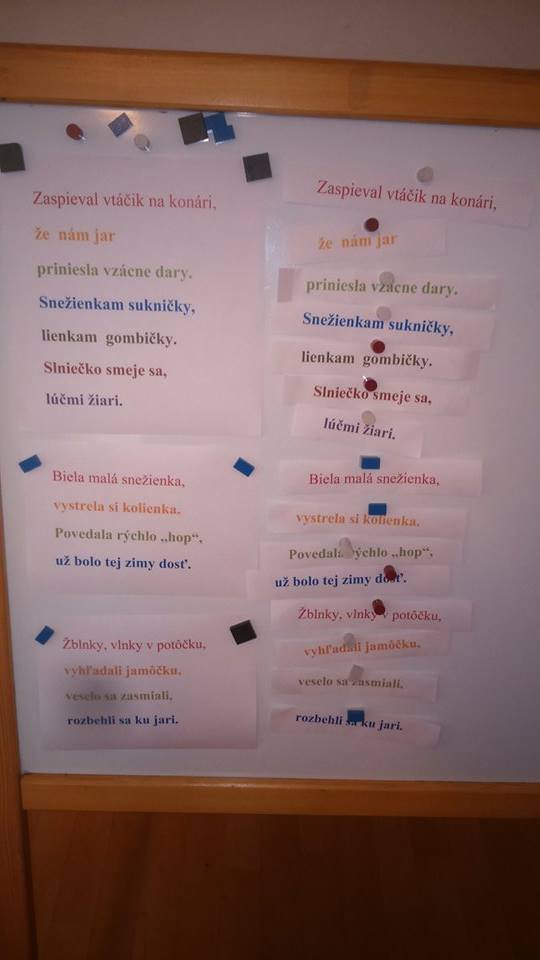 Zaspieval vtáčik na konári,
že nám jar
priniesla vzácne dary.
Snežienkam sukničky,
lienkam gombičky.
Slniečko smeje sa,
lúčmi žiari.
Biela malá snežienka,
vystrela si kolienka.
Povedala rýchlo „hop“,
už bolo tej zimy dosť.
Žblnky, vlnky v potôčku,
vyhľadali jamôčku,
veselo sa zasmiali,
rozbehli sa ku jari.
Zaspieval vtáčik na konári,
že nám jar
priniesla vzácne dary.
Snežienkam sukničky,
lienkam gombičky.
Slniečko smeje sa,
lúčmi žiari.
Biela malá snežienka,
vystrela si kolienka.
Povedala rýchlo „hop“,
už bolo tej zimy dosť.
Žblnky, vlnky v potôčku,
vyhľadali jamôčku.
veselo sa zasmiali,
rozbehli sa ku jari.